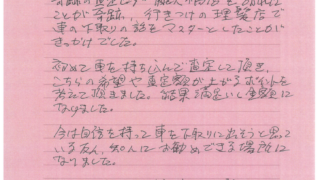 ことが奇跡、行きつけの理髪店で
車の下取りの話をマスターとしたことが
きっかけでした。
初めて車を持ち込んで査定して頂き、
こちらの希望や査定額が上がるポイントを
考えて頂きました。結果、満足いく金額に
なりました。
今は自信を持って車を下取りに出そうと思って
いる友人、知人にお勧めできる場所に
なりました。